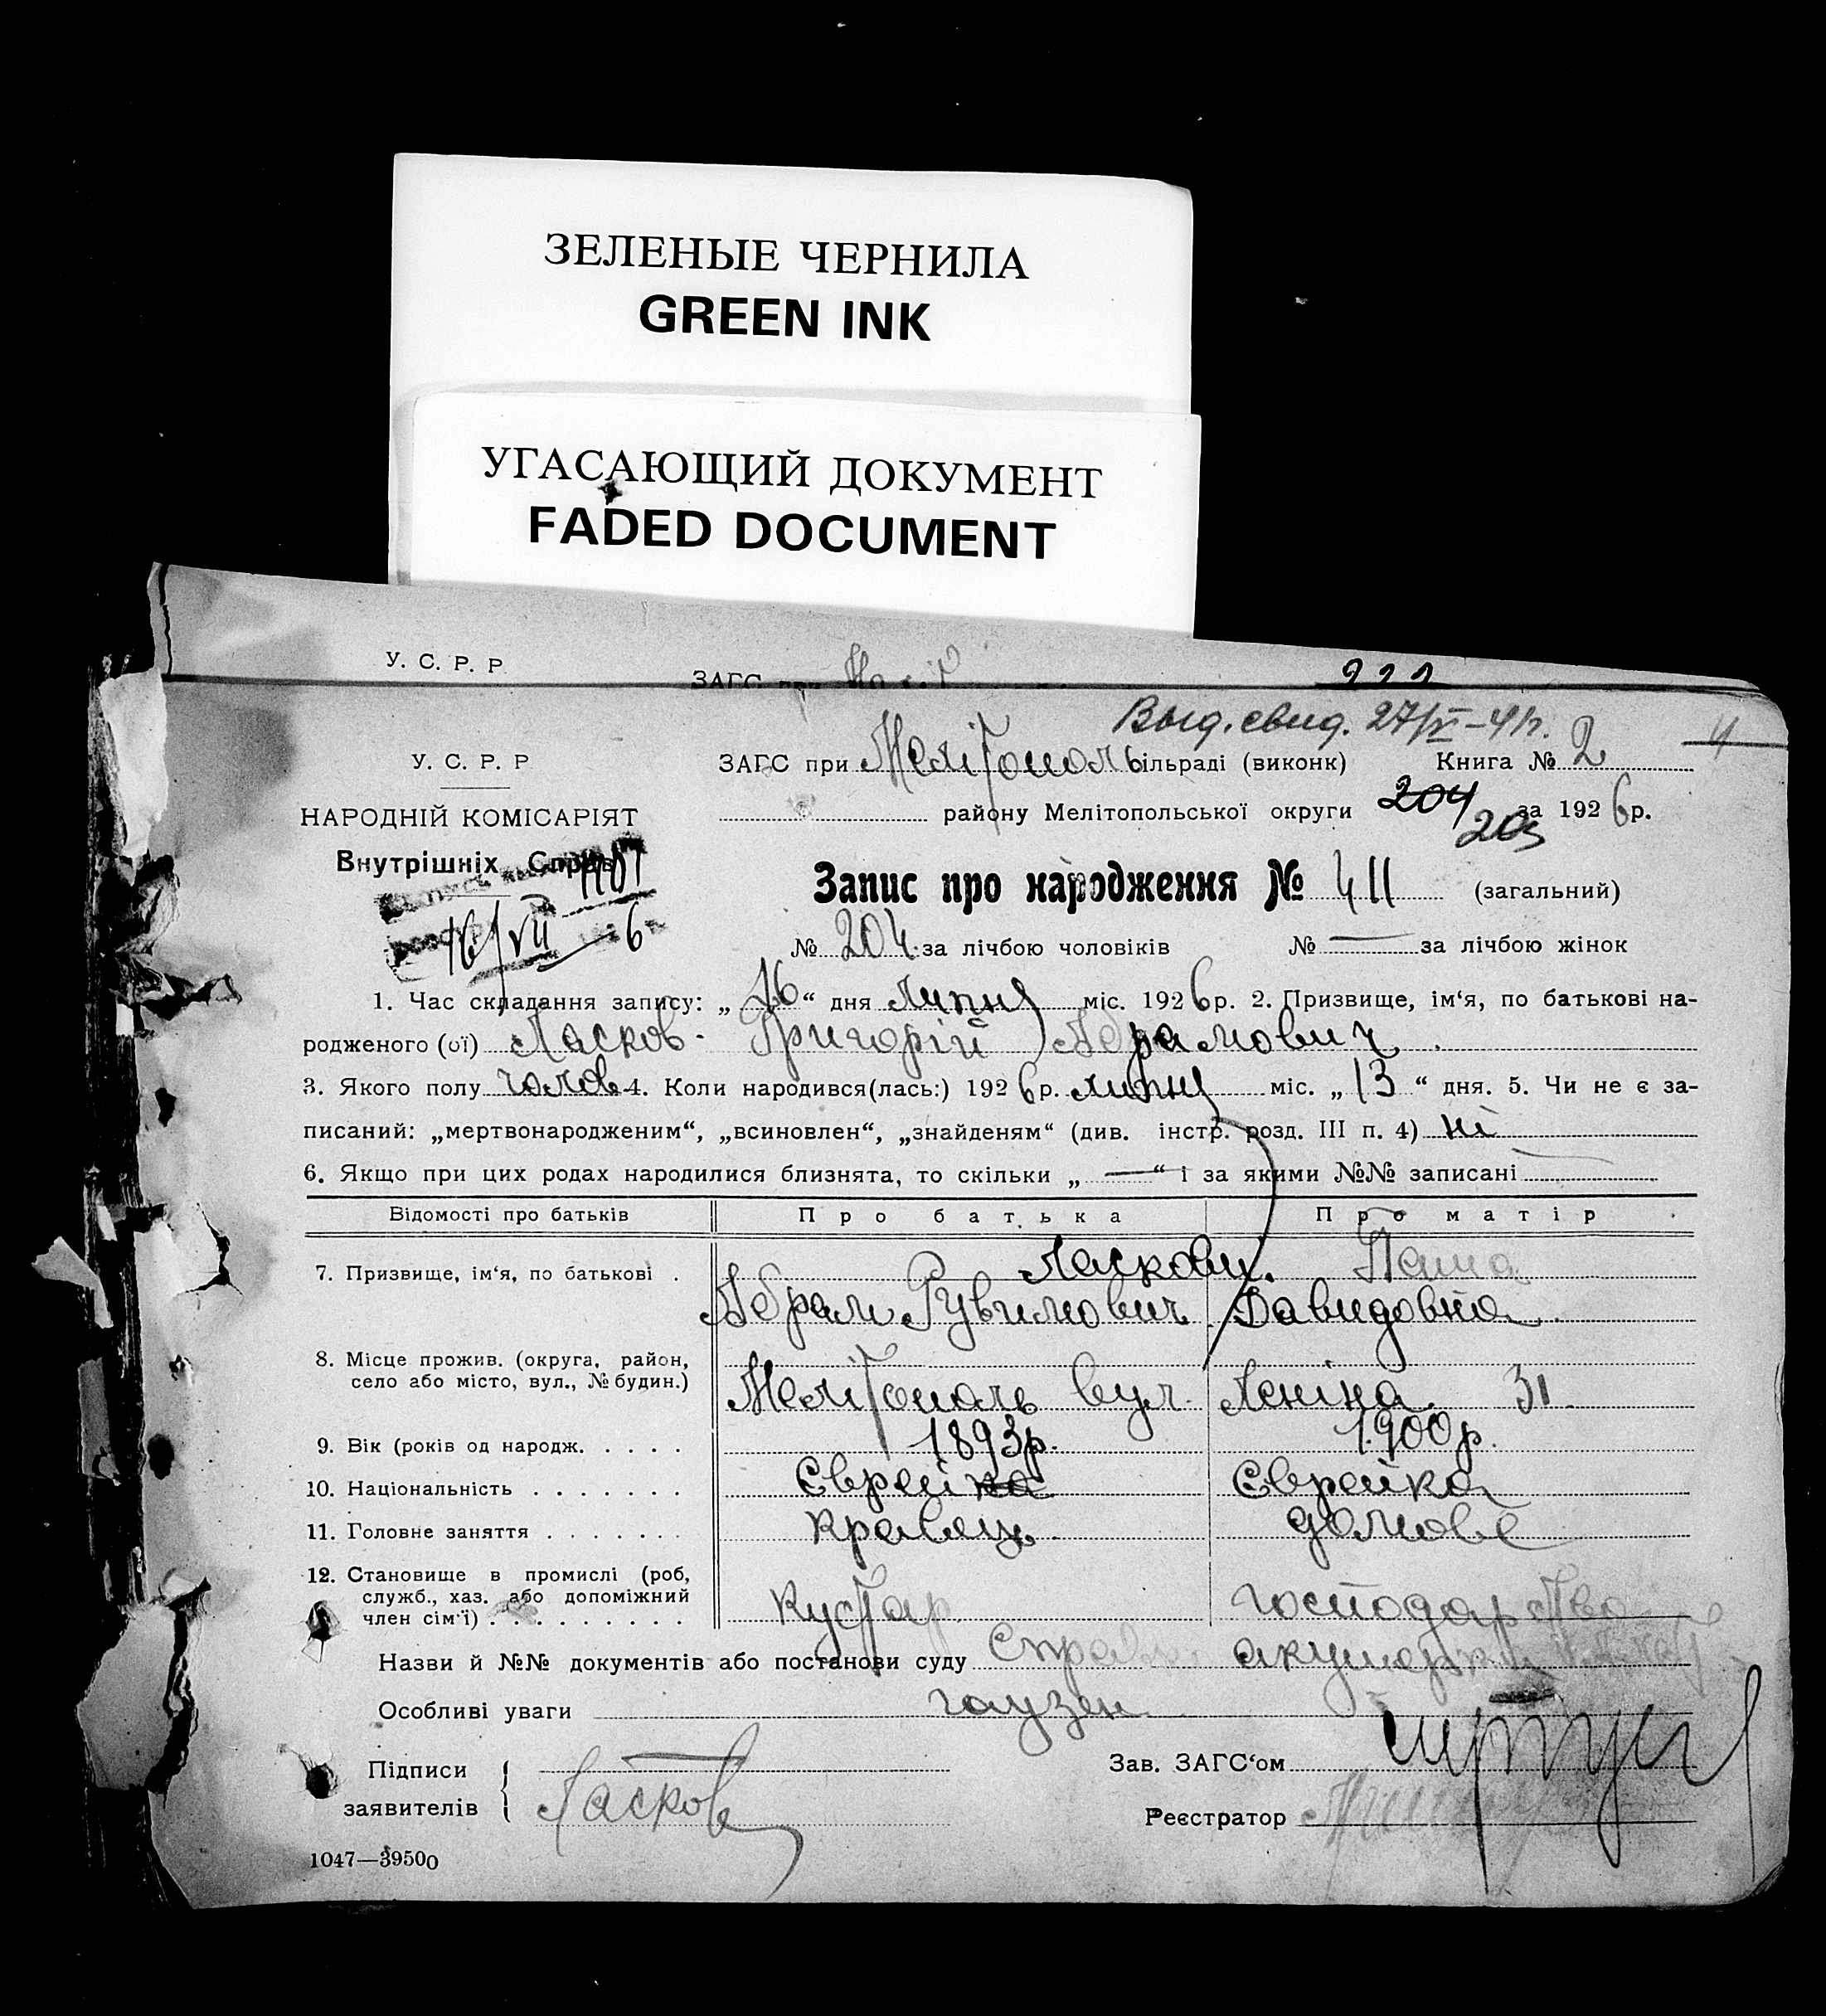 ЗЕЛЕНЫЕ ЧЕРНИЛА
GREEN INK
УГАСАЮЩИЙ ДОКУМЕНТ
FADED DOCUMENT
У. С. Р. Р
ЗАГС при
Выд. свид. 27/V-41г.
У. С. Р. Р
ЗАГС при Мелітополь сільраді (виконк) Книга № 2
НАРОДНІЙ КОМІСАРІЯТ
району Мелітопольської округи 204 203 за 1926 р.
Внутрішніх Справ
Запис про народження № 411 (загальний)
16/VII 6
№ 204 за лічбою чоловіків № — за лічбою жінок
1. Час складання запису: „ 16 “ дня липня міс. 1926 р. 2. Призвище, ім‘я, по батькові на-
родженого (ої) Ласков Григорій Абрамович
3. Якого полу чолов 4. Коли народився(лась:) 1926 р. липня міс. „ 13 “ дня. 5. Чи не є за-
писаний: „мертвонародженим“, „всиновлен“, „знайденям“ (див. інстр. розд. III п. 4) ні
6. Якщо при цих родах народилися близнята, то скільки „ — “ і за якими №№ записані
Відомості про батьків Про батька Про матір
7. Призвище, ім‘я, по батькові . Ласкови. Паша
Абрам Рувимович Давидовна
8. Місце прожив. (округа, район,
село або місто, вул., № будин.) Мелітополь вул. Леніна 31
9. Вік (років од народж. . . . . 1893р. 1900р.
10. Національність . . . . . . . Єврейка Єврейка
11. Головне заняття . . . . . . . Кравець домове
12. Становище в промислі (роб,
служб., хаз. або допоміжний
член сім‘ї) . . . . . . . . . Кустар господарство
Назви й №№ документів або постанови суду акушерки
Особливі уваги гаузен
Підписи
заявителів Ласков
Зав. ЗАГС‘ом
Реєстратор
1047—39500